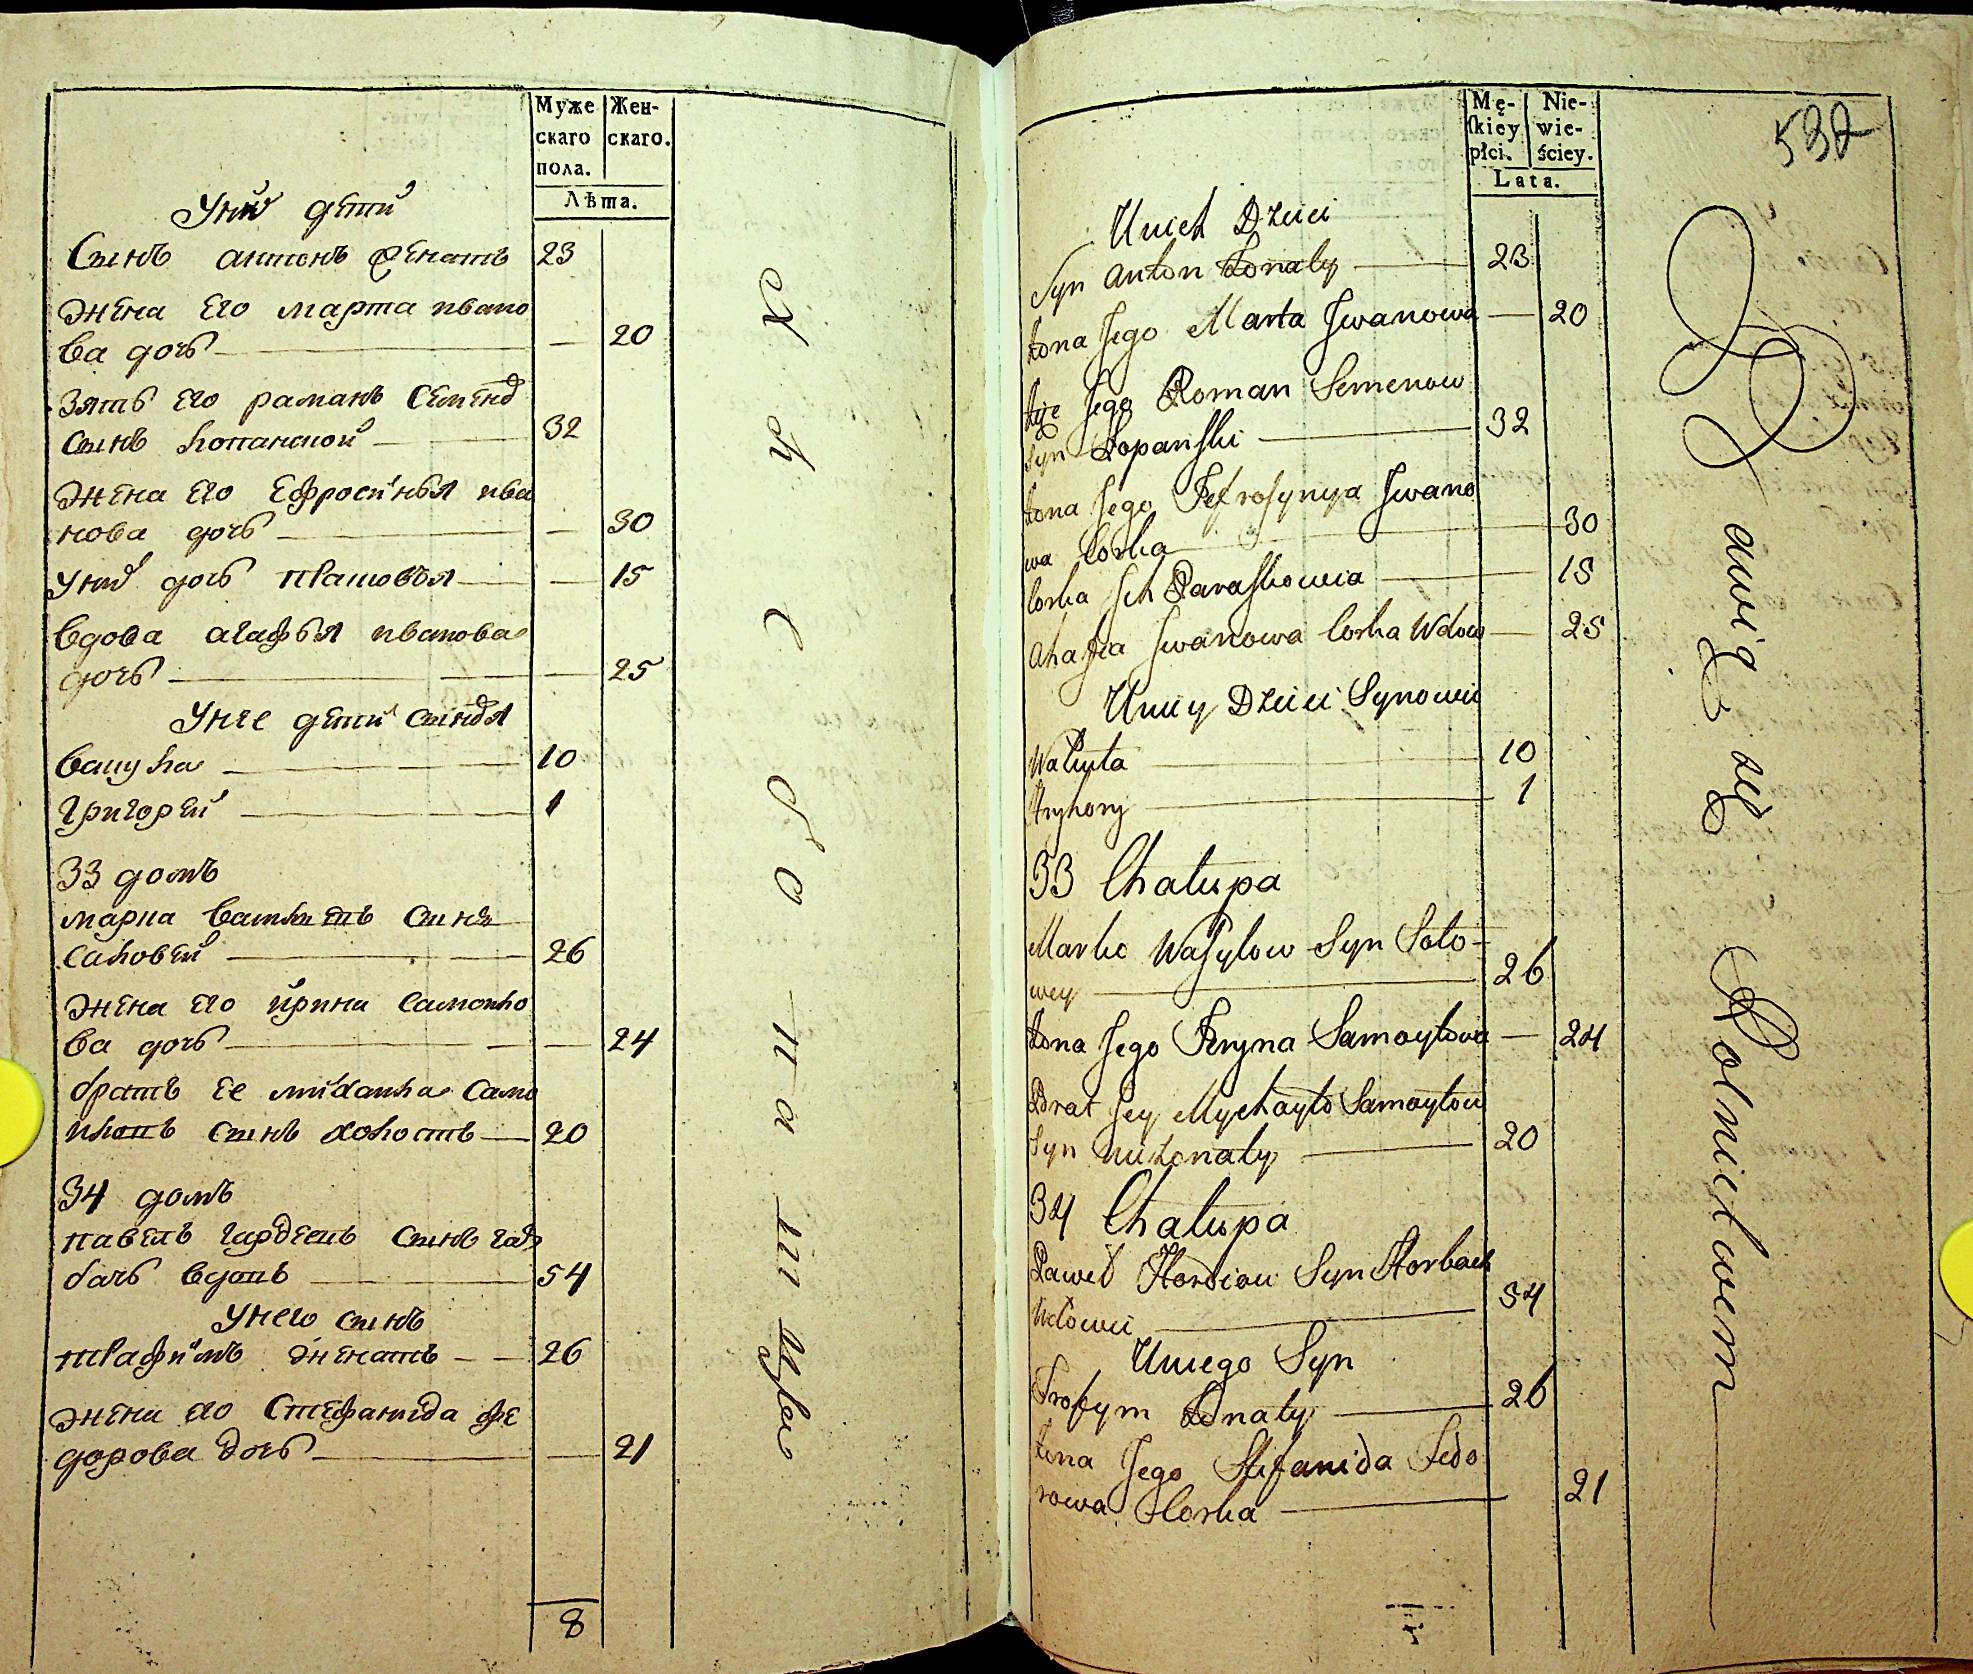 Муже
скаго
пола.
Жен-
скаго.
Лѣта.
Уних дети
Сынъ антонъ женатъ 23
жена его марта ивано
ва дочь 20
Зять его раманъ Семенов
сынъ лопанской 32
жена его Ефросинья ива
нова дочь 30
Уних дочь прасковья 15
вдова агафья иванова
дочь 25
Унее дети синовя
вакула 10
григорей 1
33 домъ
марка василевъ синъ
саловей 26
жена его ирина самойло
ва дочь 24
братъ ее михайла само
йловъ синъ холостъ 20
34 домъ
павелъ гардеевъ синъ гор
бачь вдовъ 54
Унего синъ
трафимъ женатъ 26
жена его Стефанида фе
дорова дочь 21
8
Mę-
skiey
płci.
Nie-
wie-
ściey.
Lata.
532
Unich Dzieci
Syn Anton Żonaty 23
Żona Jego Marta Jwanowa 20
Jego Roman Semenow
Syn Łopański 32
Żona Jego Jefrosynya Jwano
wa Corka 30
Corka Jch Paraskowia 15
Ahafia Jwanowa Corka Wdowa 25
Uniey Dzieci Synowie
Wakuła 10
Hryhory 1
33 Chałupa
Marko Wasylow Syn Soło-
wey 26
Żona Jego Jeryna Samoyłowa 24
Brat Jey Mychayło Samoyłow
Syn nieżonaty 20
34 Chałupa
Paweł Hordiow Syn Horbacz
Wdowiec 54
Uniego Syn
Trofym Żonaty 26
Żona Jego Stefanida Fedo
rowa Corka 21